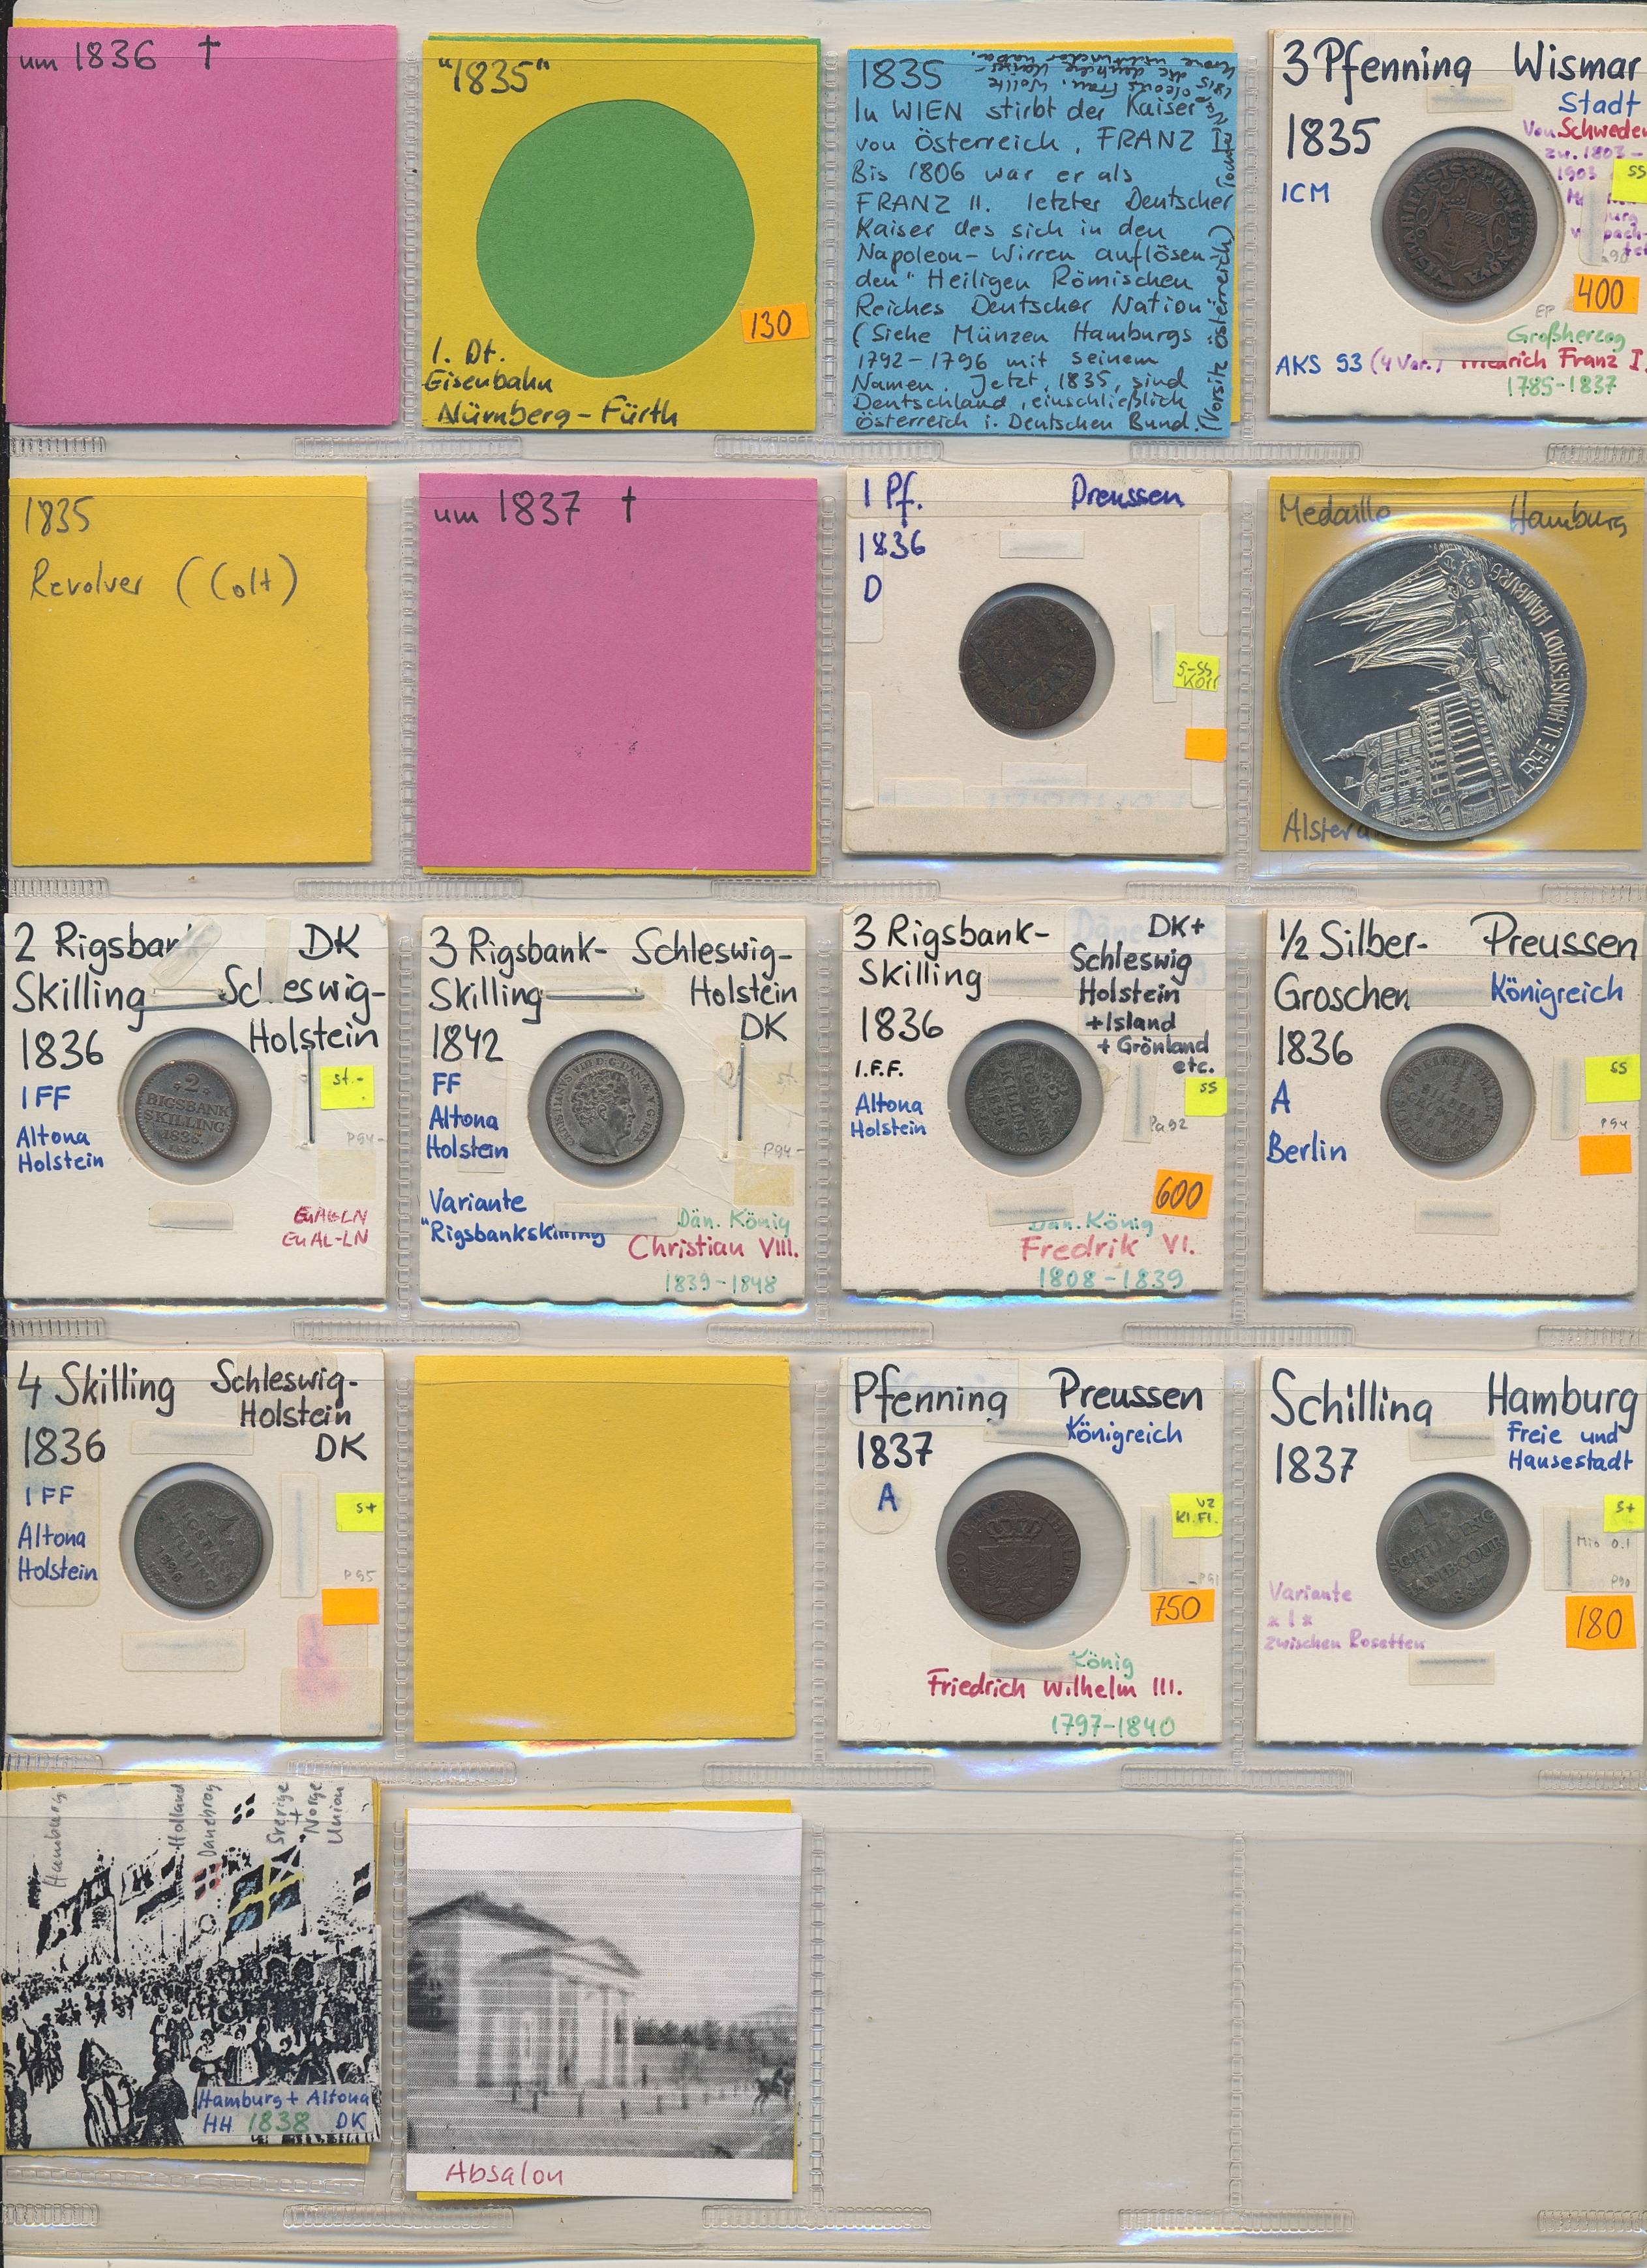 um 1836 †
"1835"
130
1. Dt.
Eisenbahn
Nürnberg - Fürth
1835
In WIEN stirbt der Kaiser
von Österreich, FRANZ I
Bis 1806 war er als
FRANZ II. letzter Deutscher
Kaiser des sich in den
Napoleon- Wirren auflösen-
den "Heiligen Römischen
Reiches Deutscher Nation"
(Siehe Münzen Hamburgs
1792-1796 mit seinem
Namen. Jetzt, 1835, sind
Deutschland, einschließlich
Österreich i. Deutschen Bund.
(Vorsitz Österreich)
3 Pfenning Wismar
Stadt
1835
Von Schweden
zw. 1803-
1903
ICM
SS
400
EP
Großherzog
AKS 93 (4 Var.) Friedrich Franz I.
1785-1837
VISMARIENSIS MONETA NOVA
1835
Revolver (Colt)
um 1837 †
1 Pf. Preussen
1836
D
S-SS
Korr
Medaille Hamburg
FREIE U. HANSESTADT HAMBURG
2 Rigsbank DK
Skilling Schleswig-
Holstein
1836
IFF
Altona
Holstein
st.-
P94-
2
RIGSBANK
SKILLING
1836.
3 Rigsbank- Schleswig-
Skilling Holstein
DK
1842
FF
Altona
Holstein
st-
P94-
Variante
"Rigsbankskilling
Dän. König
Christian VIII.
1839-1848
CHRISTIANVS VIII D.G. DANIÆ V.G. REX
3 Rigsbank- DK+
Skilling Schleswig
Holstein
+Island
+ Grönland
etc.
1836
I.F.F.
Altona
Holstein
SS
Pa92
600
Dän. König
Fredrik VI.
1808-1839
3
RIGSBANK
SKILLING
1836
½ Silber- Preussen
Groschen Königreich
1836
A
Berlin
SS
P94
4 Skilling Schleswig-
Holstein
1836 DK
IFF
Altona
Holstein
S+
P95
4
RIGSBANK
SKILLING
1836
Pfenning Preussen
1837 Königreich
A
VZ
Kl.Fl.
P91
750
König
Friedrich Wilhelm III.
1797-1840
Schilling Hamburg
Freie und
1837 Hansestadt
S+
P90
Variante
* I *
zwischen Rosetten
180
I
SCHILLING
HAMB COUR
1837
Hamburg
Holland
Danebrog
Sverige
+
Norge
Union
Hamburg + Altona
HH 1838 DK
Absalon